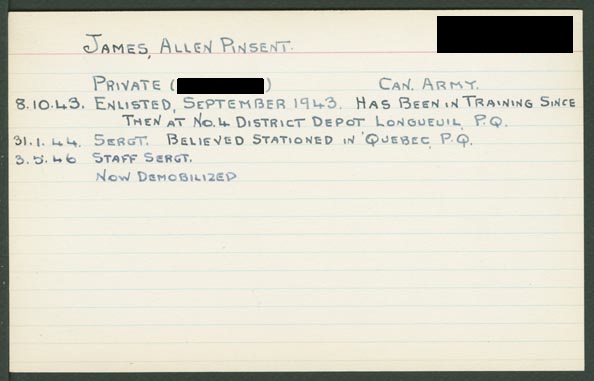 JAMES, ALLEN PINSENT.
PRIVATE ( ) CAN. ARMY.
8.10.43. ENLISTED, SEPTEMBER 1943. HAS BEEN IN TRAINING SINCE
THEN AT NO.4 DISTRICT DEPOT LONGUEUIL, P.Q.
31.1.44. SERGT. BELIEVED STATIONED IN QUEBEC, P.Q.
3.5.46 STAFF SERGT.
NOW DEMOBILIZED